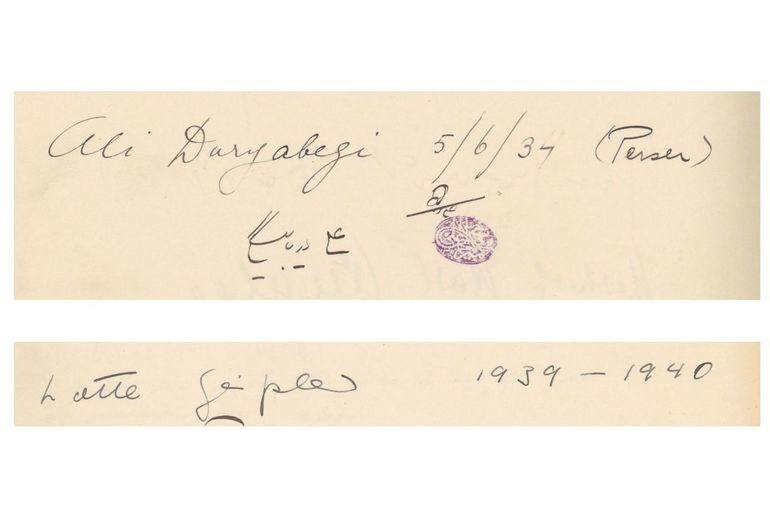 Ali Daryabegi 5/6/34 (Perser)
Lotte 1939 - 1940